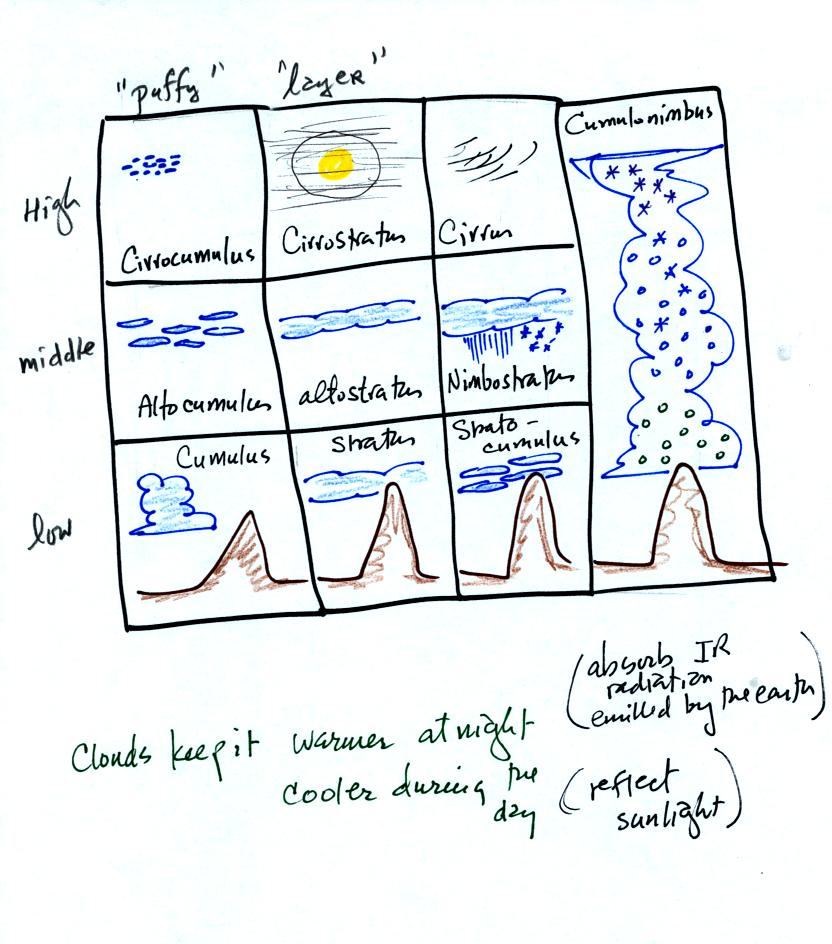 "puffy" "layer"
Cumulonimbus
High
Cirrocumulus Cirrostratus Cirrus
middle
Altocumulus altostratus Nimbostratus
Cumulus stratus Strato-
cumulus
low
absorb IR
radiation
(emitted by the earth)
Clouds keep it warmer at night
cooler during the
day
(reflect
sunlight)